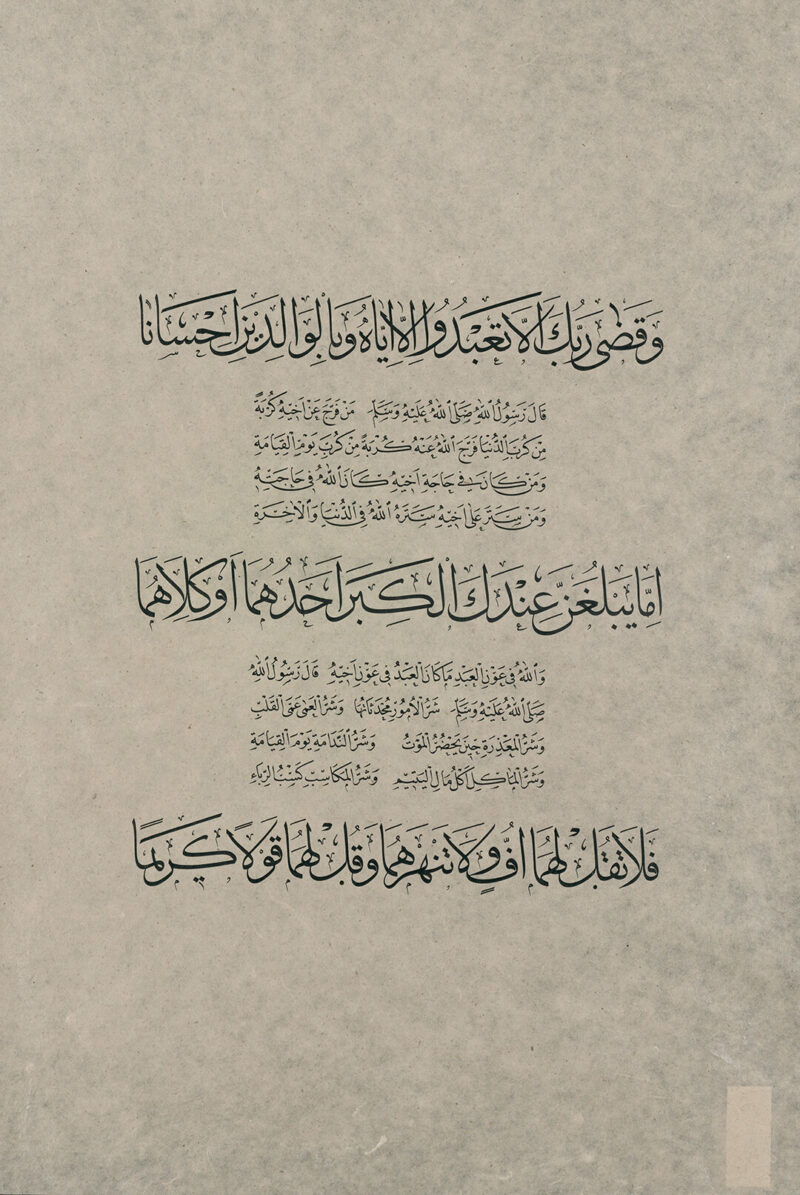 وَقَضَى رَبُّكَ أَلَّا تَعْبُدُوا إِلَّا إِيَّاهُ وَبِالْوَالِدَيْنِ إِحْسَانًا
قَالَ رَسُولُ اللهِ صَلَّى اللهُ عَلَيْهِ وَسَلَّمَ مَنْ فَرَّجَ عَنْ أَخِيهِ كُرْبَةً
مِنْ كُرَبِ الدُّنْيَا فَرَّجَ اللهُ عَنْهُ كُرْبَةً مِنْ كُرَبِ يَوْمِ الْقِيَامَةِ
وَمَنْ كَانَ فِي حَاجَةِ أَخِيهِ كَانَ اللهُ فِي حَاجَتِهِ
وَمَنْ سَتَرَ عَلَى أَخِيهِ سَتَرَهُ اللهُ فِي الدُّنْيَا وَالْآخِرَةِ
إِمَّا يَبْلُغَنَّ عِنْدَكَ الْكِبَرَ أَحَدُهُمَا أَوْ كِلَاهُمَا
وَاللهُ فِي عَوْنِ الْعَبْدِ مَا كَانَ الْعَبْدُ فِي عَوْنِ أَخِيهِ قَالَ رَسُولُ اللهِ
صَلَّى اللهُ عَلَيْهِ وَسَلَّمَ شَرُّ الْأُمُورِ مُحْدَثَاتُهَا وَشَرُّ الْعَمَى عَمَى الْقَلْبِ
وَشَرُّ الْمَعْذِرَةِ حِينَ يَحْضُرُ الْمَوْتُ وَشَرُّ النَّدَامَةِ يَوْمَ الْقِيَامَةِ
وَشَرُّ الْمَأْكَلِ أَكْلُ مَالِ الْيَتِيمِ وَشَرُّ الْمَكَاسِبِ كَسْبُ الرِّبَاءِ
فَلَا تَقُلْ لَهُمَا أُفٍّ وَلَا تَنْهَرْهُمَا وَقُلْ لَهُمَا قَوْلًا كَرِيمًا